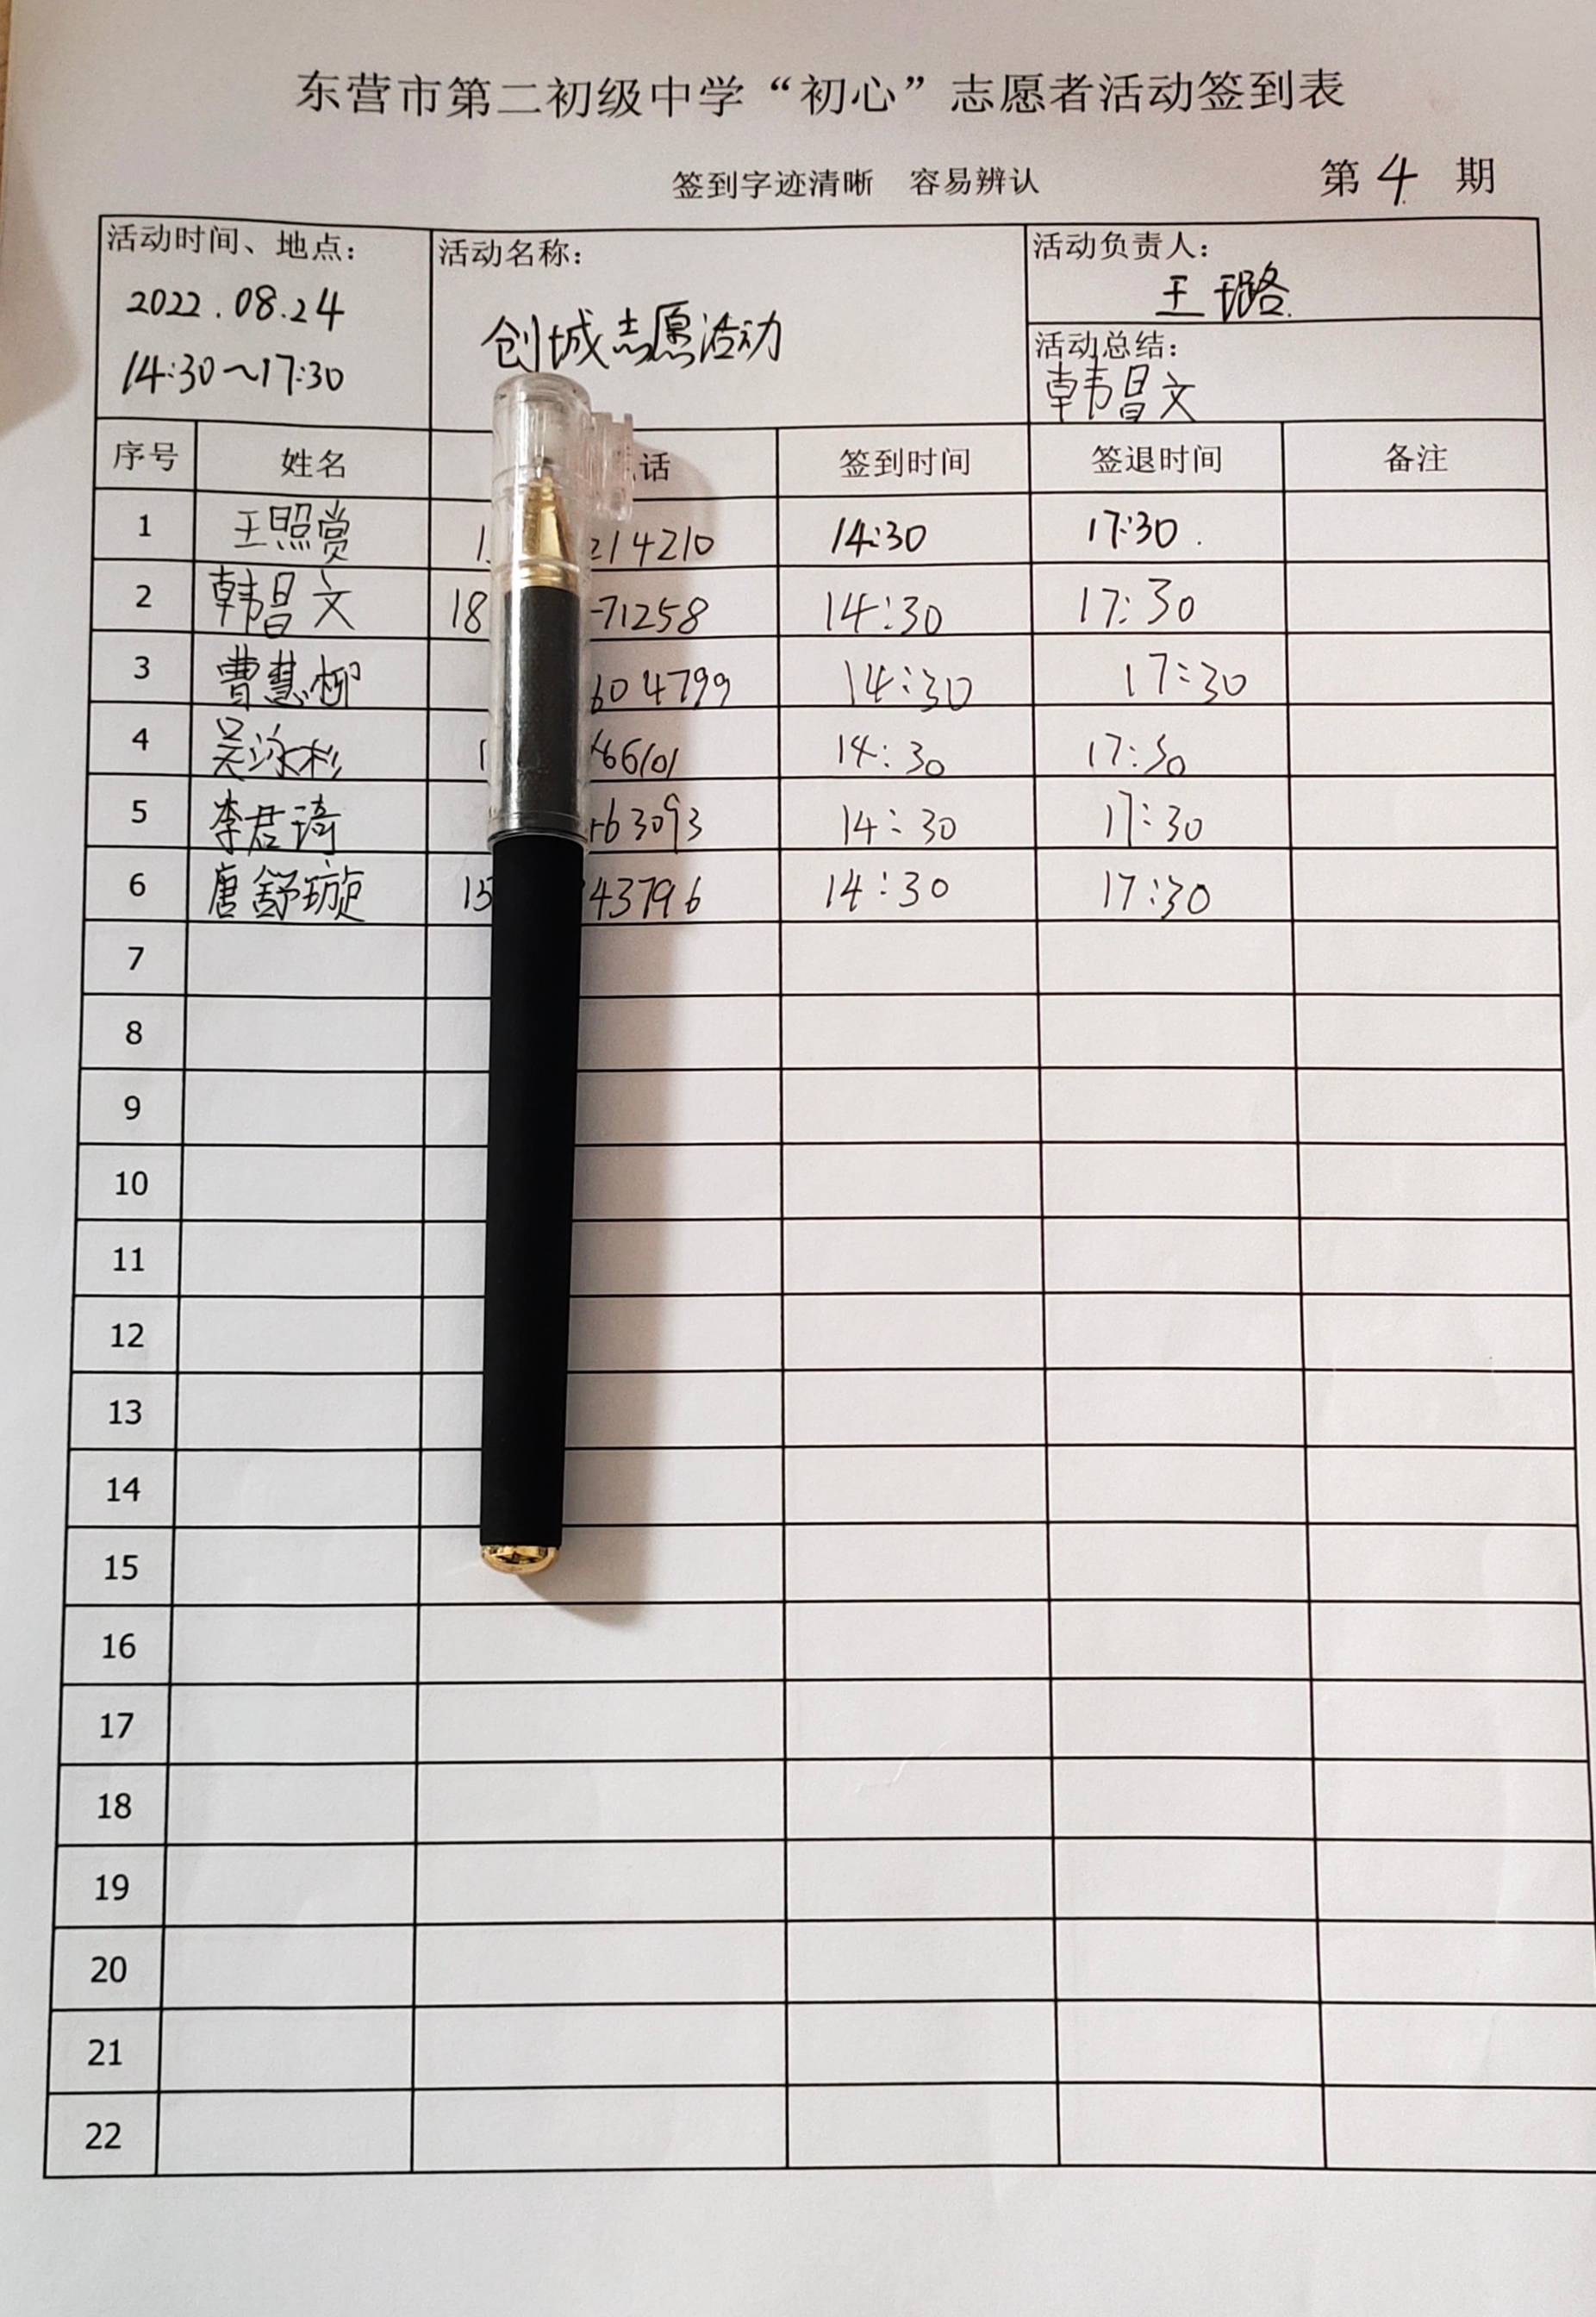 东营市第二初级中学“初心”志愿者活动签到表
签到字迹清晰 容易辨认 第 4 期
活动时间、地点： 活动名称： 活动负责人：
2022.08.24 创城志愿活动 王璐
14:30～17:30 活动总结：
韩昌文
序号 姓名 话 签到时间 签退时间 备注
1 王照赏 214210 14:30 17:30
2 韩昌文 18 71258 14:30 17:30
3 曹慧柳 604799 14:30 17:30
4 吴泳杉 86101 14:30 17:30
5 李君琦 63093 14:30 17:30
6 唐舒璇 15 43796 14:30 17:30
7
8
9
10
11
12
13
14
15
16
17
18
19
20
21
22